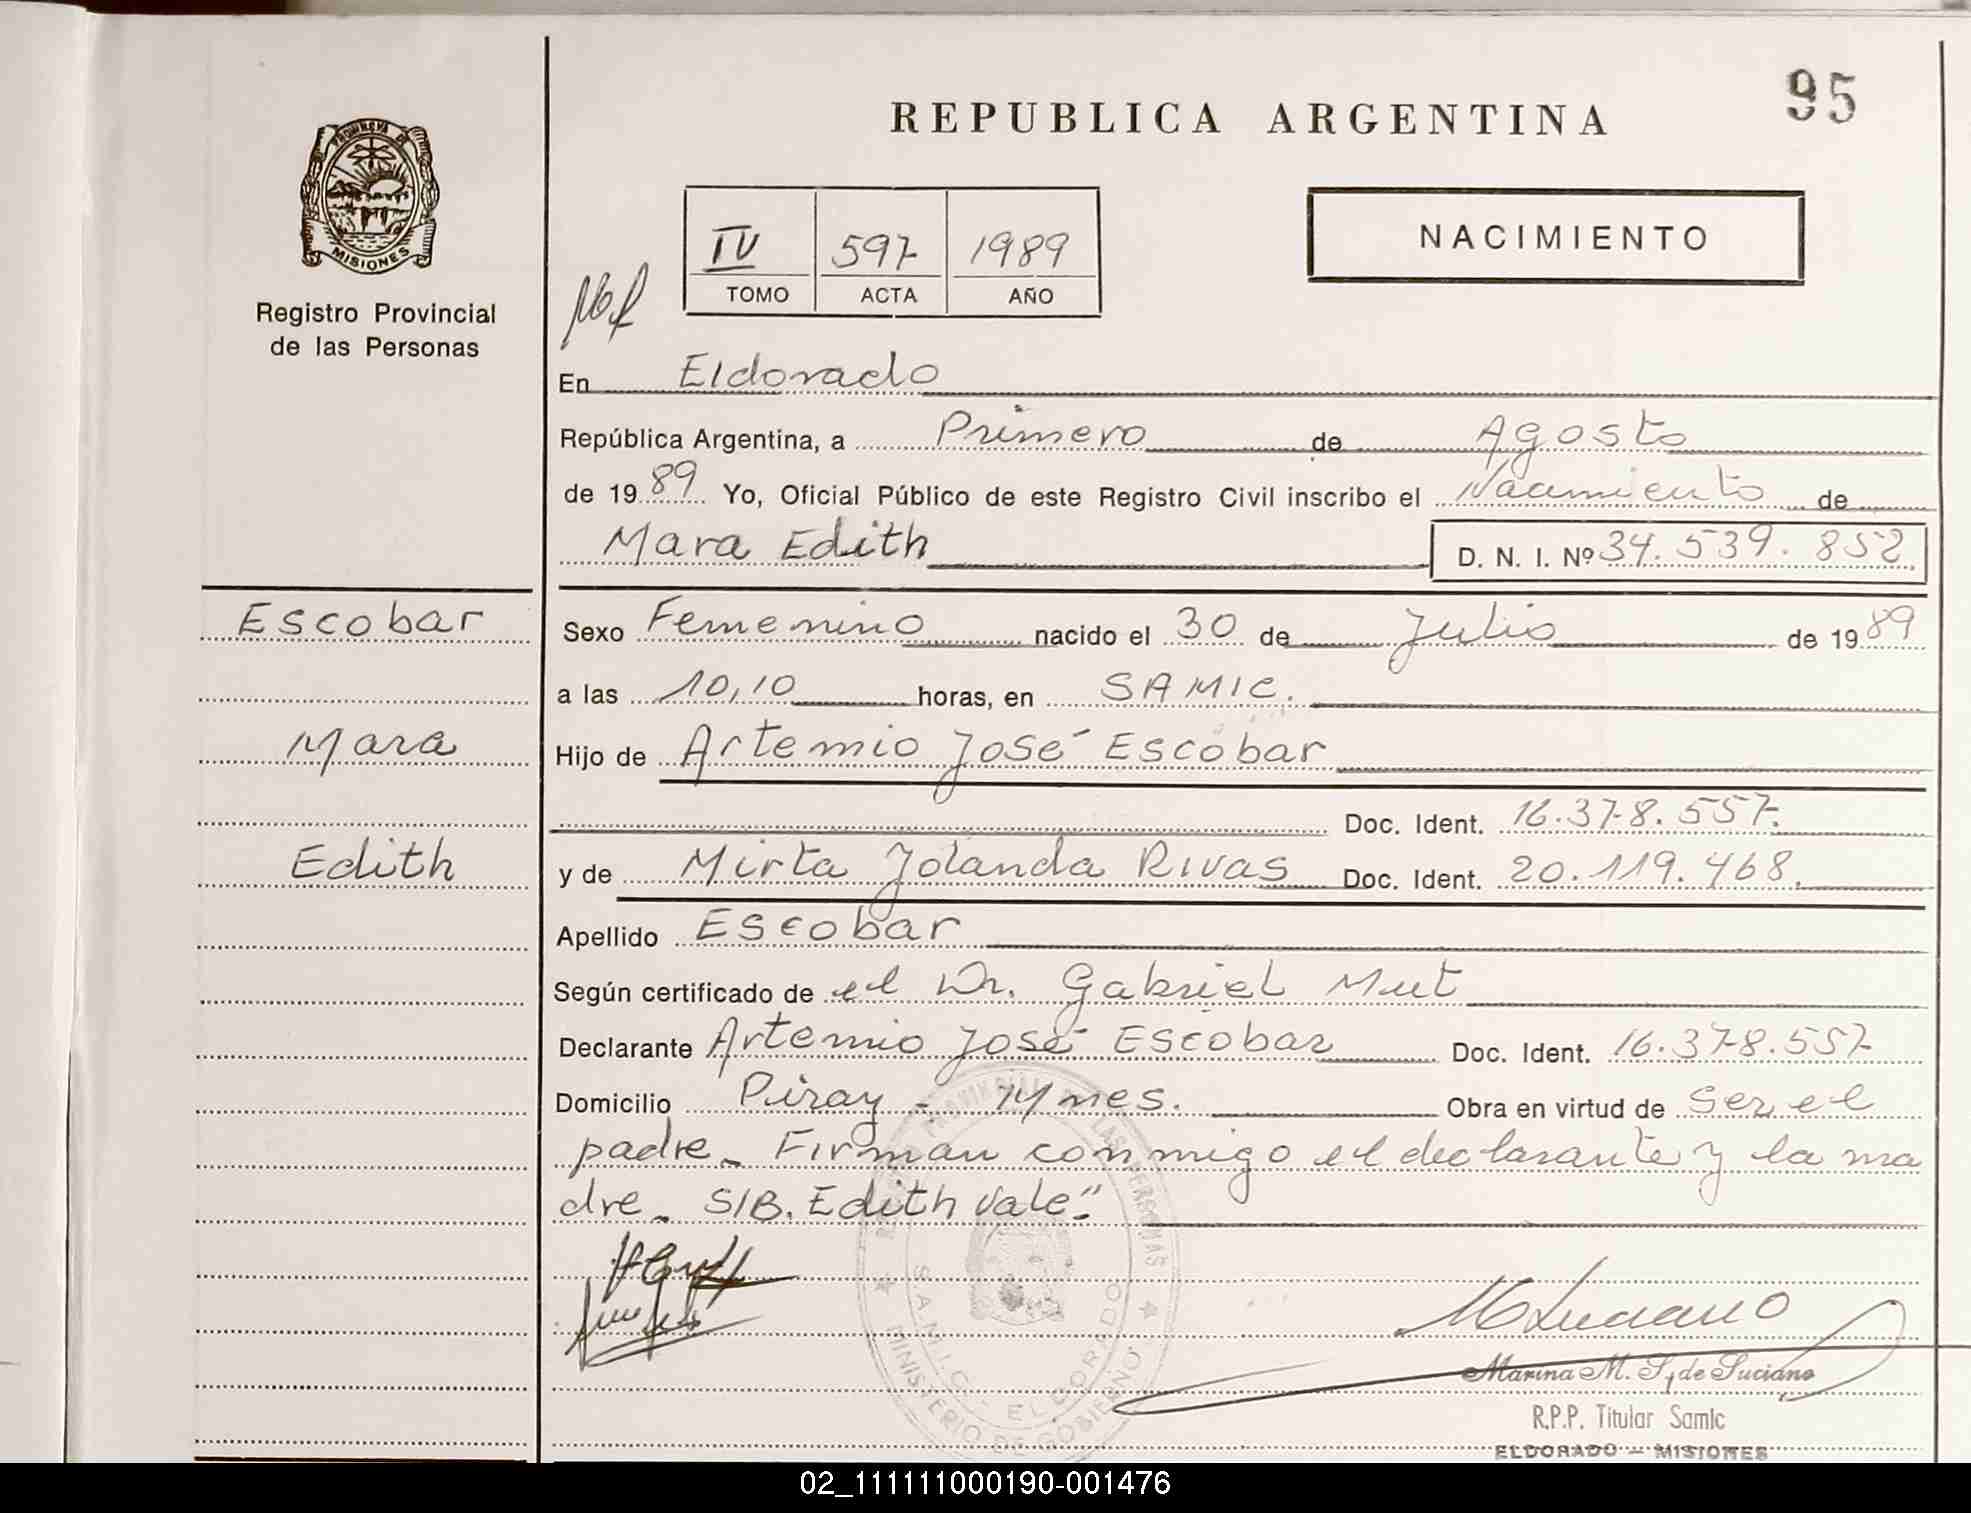 REPUBLICA ARGENTINA
95
PROVINCIA DE
MISIONES
Registro Provincial
de las Personas
IV 597 1989
TOMO ACTA AÑO
NACIMIENTO
En Eldorado
República Argentina, a Primero de Agosto
de 1989 Yo, Oficial Público de este Registro Civil inscribo el Nacimiento de
Mara Edith D. N. I. Nº 34.539.852
Escobar
Mara
Edith
Sexo Femenino nacido el 30 de Julio de 1989
a las 10,10 horas, en SAMIC.
Hijo de Artemio José Escobar
Doc. Ident. 16.378.557.
y de Mirta Yolanda Rivas Doc. Ident. 20.119.468.
Apellido Escobar
Según certificado de el Dr. Gabriel Mut
Declarante Artemio José Escobar Doc. Ident. 16.378.557
Domicilio Piray - Mnes. Obra en virtud de Ser el
padre_ Firman conmigo el declarante y la ma
dre_ S/B. Edith Vale."
REGISTRO PROVINCIAL DE LAS PERSONAS
S.A.M.I.C. ELDORADO
MINISTERIO DE GOBIERNO
Marina M. S. de Luciano
R.P.P. Titular Samic
ELDORADO - MISIONES
02_111111000190-001476